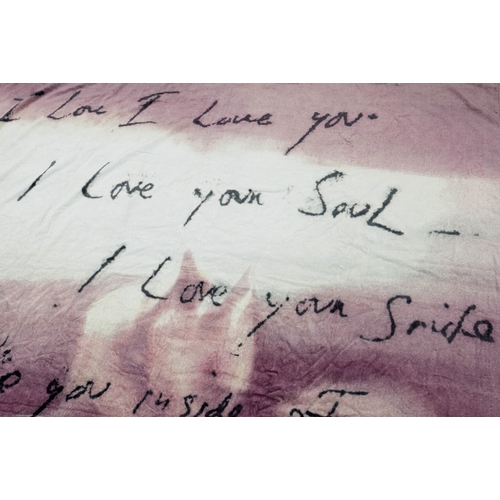 I Love I Love you.
I Love your SouL –
I Love your Smile
you inside of